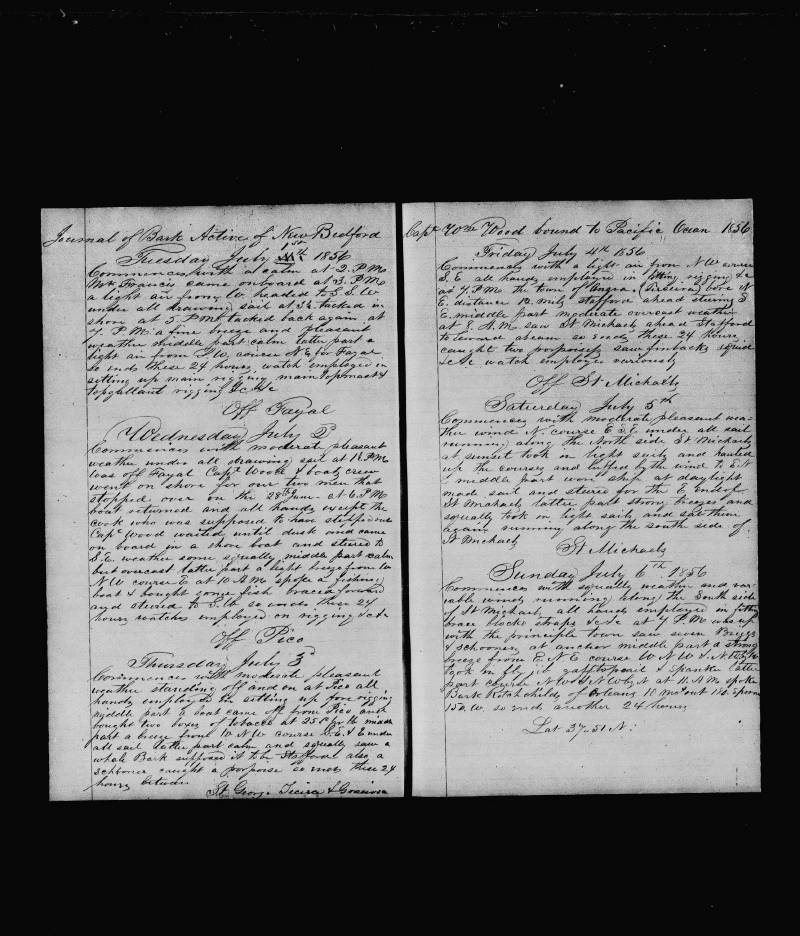 Journal of Bark Active of New Bedford
Tuesday July 1st 1856
Commences with a calm at 2. P.M.
Mr Francis came onboard at 3. P.M.
a light air from W headed to S.S.W
under all drawing sail at 3½ tacked in
shore at 5 P.M. tacked back again at
7 P.M. a fine breeze and pleasant
weather middle part calm latter part a
light air from S.W. course N.E. for Fayal
so ends these 24 hours, watch employed in
setting up main rigging, main topmast &
topgallant rigging &c &c
Off Fayal
Wednesday July 2
Commences with moderate pleasant
weather under all drawing sail at 1 P.M.
was off Fayal Capt Wood & boats crew
went on shore for our two men that
stopped over on the 28th June at 6 P.M
boat returned and all hands except the
cook who was supposed to have
Capt Wood waited until dusk and came
on board in a shore boat and steered to
S.E. weather some squally middle part calm
but overcast latter part a light breeze from W
N W course E at 10 A.M. spoke a fishing
boat & bought some fish braced forward
and steered to so ends these 24
hours watches employed on rigging &c &c
Off Pico
Thursday July 3
Commences with moderate pleasant
weather standing off and on at Pico all
hands employed in setting up fore rigging
middle part a boat came off from Pico and
bought two boxes of tobacco at 25 Cts pr lb middle
part a breeze from W N W course S.E. & E under
all sail latter part calm and squally saw a
whale Bark supposed it to be Stafford also a
schooner caught a porpoise so ends these 24
hours between
St George Tecera & Graciosa
Capt Wm Wood bound to Pacific Ocean 1856
Friday July 4th 1856
Commences with a light air from N W course
S. E. all hands employed in fitting rigging &c
at 7 P.M. the town of Angra (Terceira) bore N
E. distance 12 mls Stafford ahead steering S
E. middle part moderate overcast weather
at 8. A.M. saw St Michaels ahead Stafford
to leward abeam so ends these 24 hours
caught two porpoises saw finbacks squid
&c &c watch employed variously
Off St Michaels
Saturday July 5th
Commences with moderate pleasant wea-
ther wind N. course E S E under all sail
running along the North side St Michaels
at sunset took in light sails and hauled
up the courses and luffed by the wind to E N
middle part wore ship at daylight
made sail and steered for the E. end of
St Michaels latter part strong breeze and
squally took in light sails and set them
again running along the south side of
St Michaels
St Michaels
Sunday July 6th 1856
Commences with squally weather and var-
iable winds running along the South side
of St Michaels all hands employed in fitting
brace blocks straps &c &c at 7 P.M. was up
with the principle town saw seven Briggs
& schooners at anchor middle part a strong
breeze from E N E course W N W & N.W. by W
took in fly jib gafftopsail & Spanker latter
part course N W & N W by N at 11 A.M. spoke
Bark Rotschilds of Orleans 10 mos out 110 Sperm
150 W. so ends another 24 hours
Lat 37-51 N.